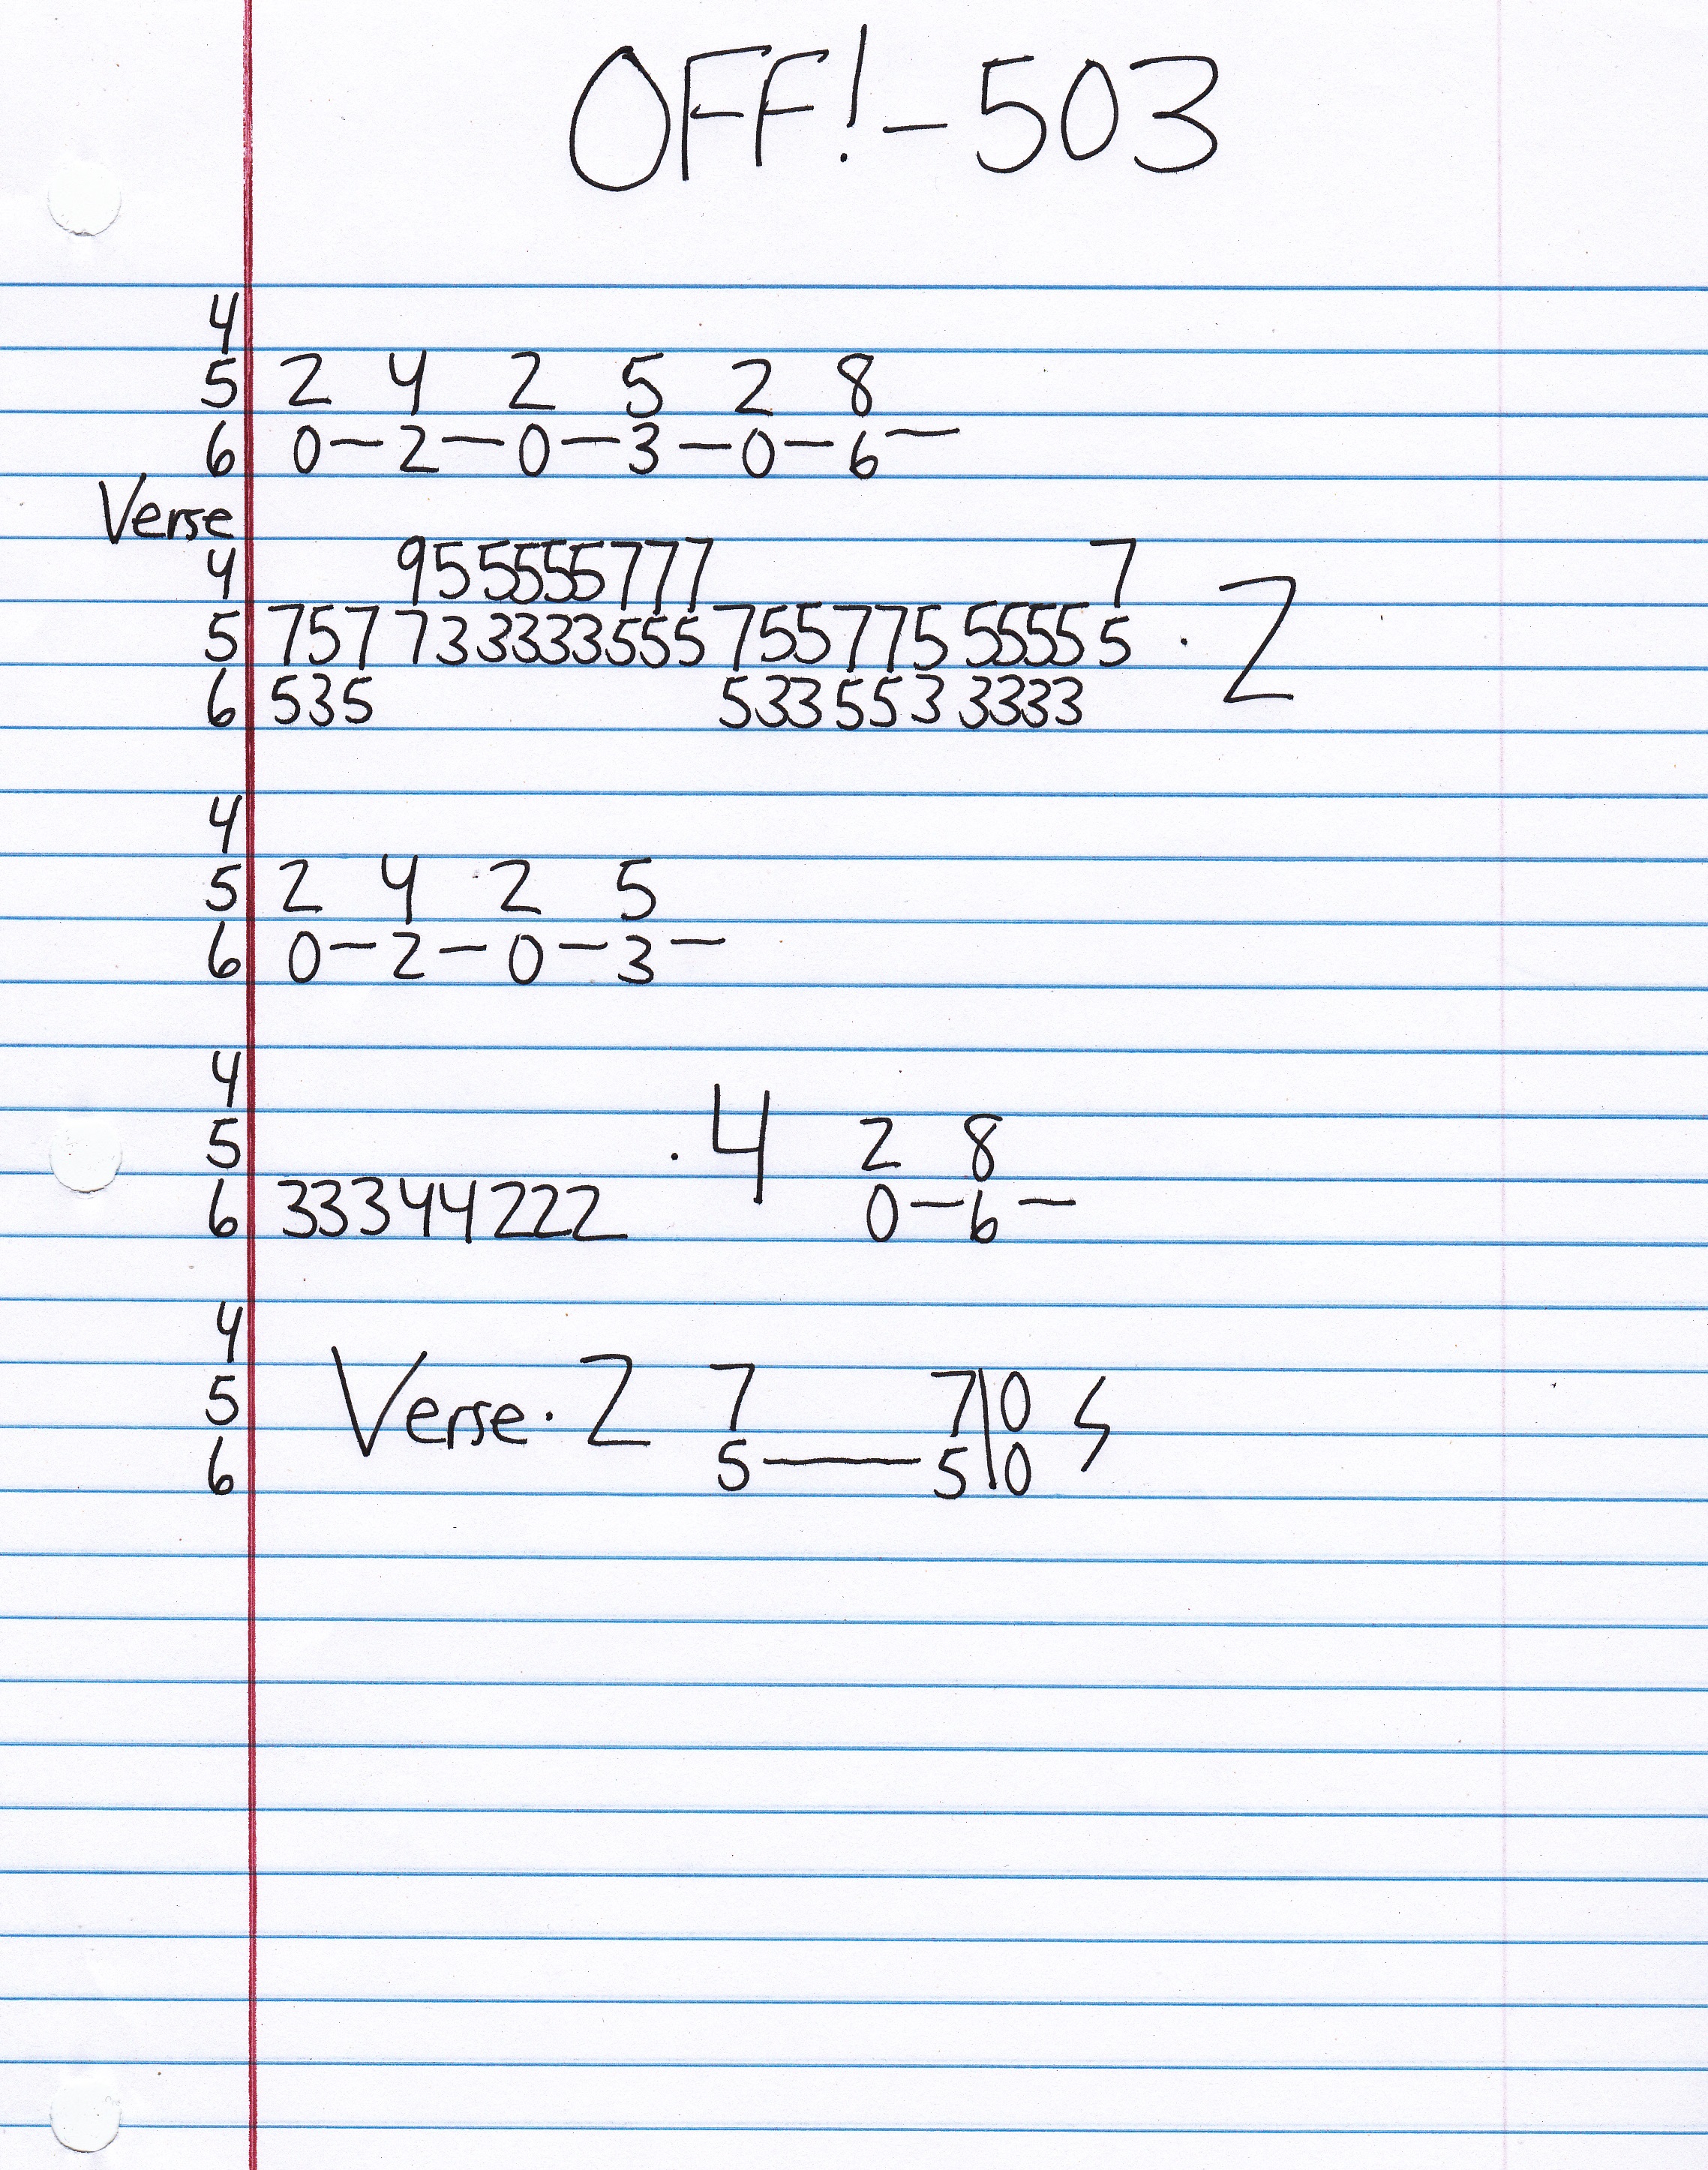 OFF! - 503
4
5 2 4 2 5 2 8
6 0 — 2 — 0 — 3 — 0 — 6 —
Verse
4 955555777 7
5 757 733333555 755775 5555 5 · 2
6 535 533553 3333
4
5 2 4 2 5
6 0 — 2 — 0 — 3 —
4
5 · 4 2 8
6 33344222 0 — 6 —
4
5 Verse · 2 7 7\0
6 5 — 5\0